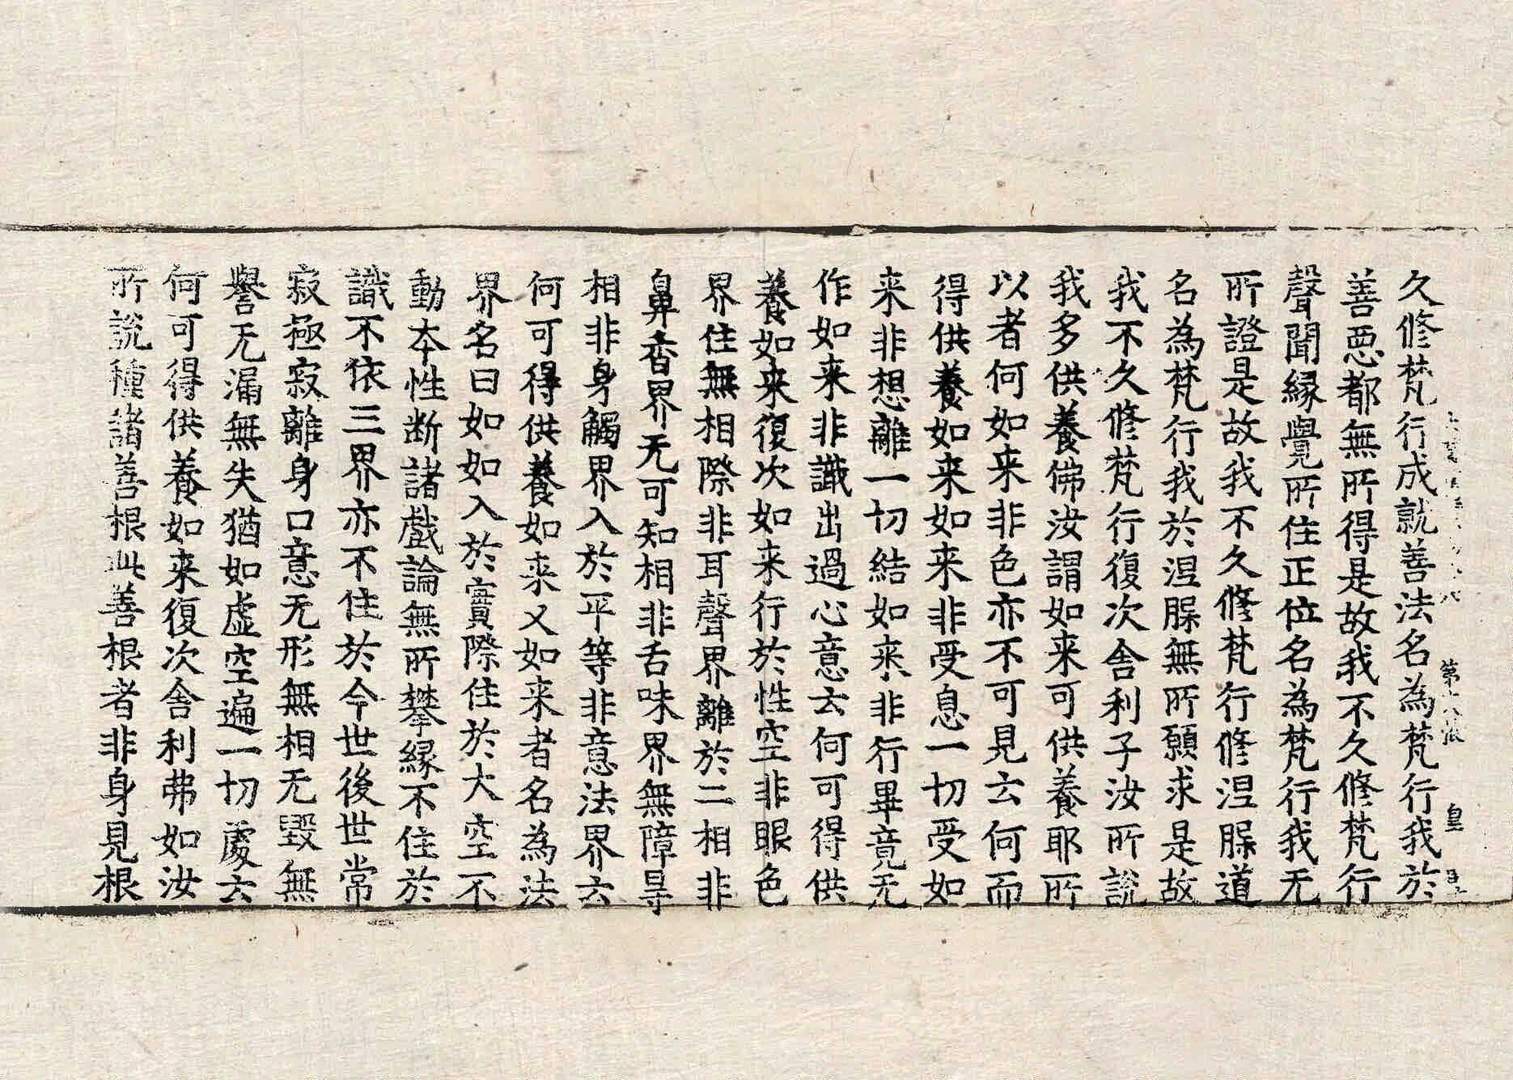 久修梵行成就善法名為梵行我於
善惡都無所得是故我不久修梵行
聲聞緣覺所住正位名為梵行我无
所證是故我不久修梵行修涅槃道
名為梵行我於涅槃無所願求是故
我不久修梵行復次舍利子汝所說
我多供養佛汝謂如来可供養耶所
以者何如来非色亦不可見云何而
得供養如来如来非受息一切受如
来非想離一切結如来非行畢竟无
作如来非識出過心意云何可得供
養如来復次如来行於性空非眼色
界住無相際非耳聲界離於二相非
鼻香界无可知相非舌味界無障㝵
相非身觸界入於平等非意法界云
何可得供養如来又如来者名為法
界名曰如如入於實際住於大空不
動本性断諸戲論無所攀緣不住於
識不依三界亦不住於今世後世常
寂極寂離身口意无形無相无毀無
譽无漏無失猶如虛空遍一切處云
何可得供養如来復次舍利弗如汝
所說種諸善根此善根者非身見根